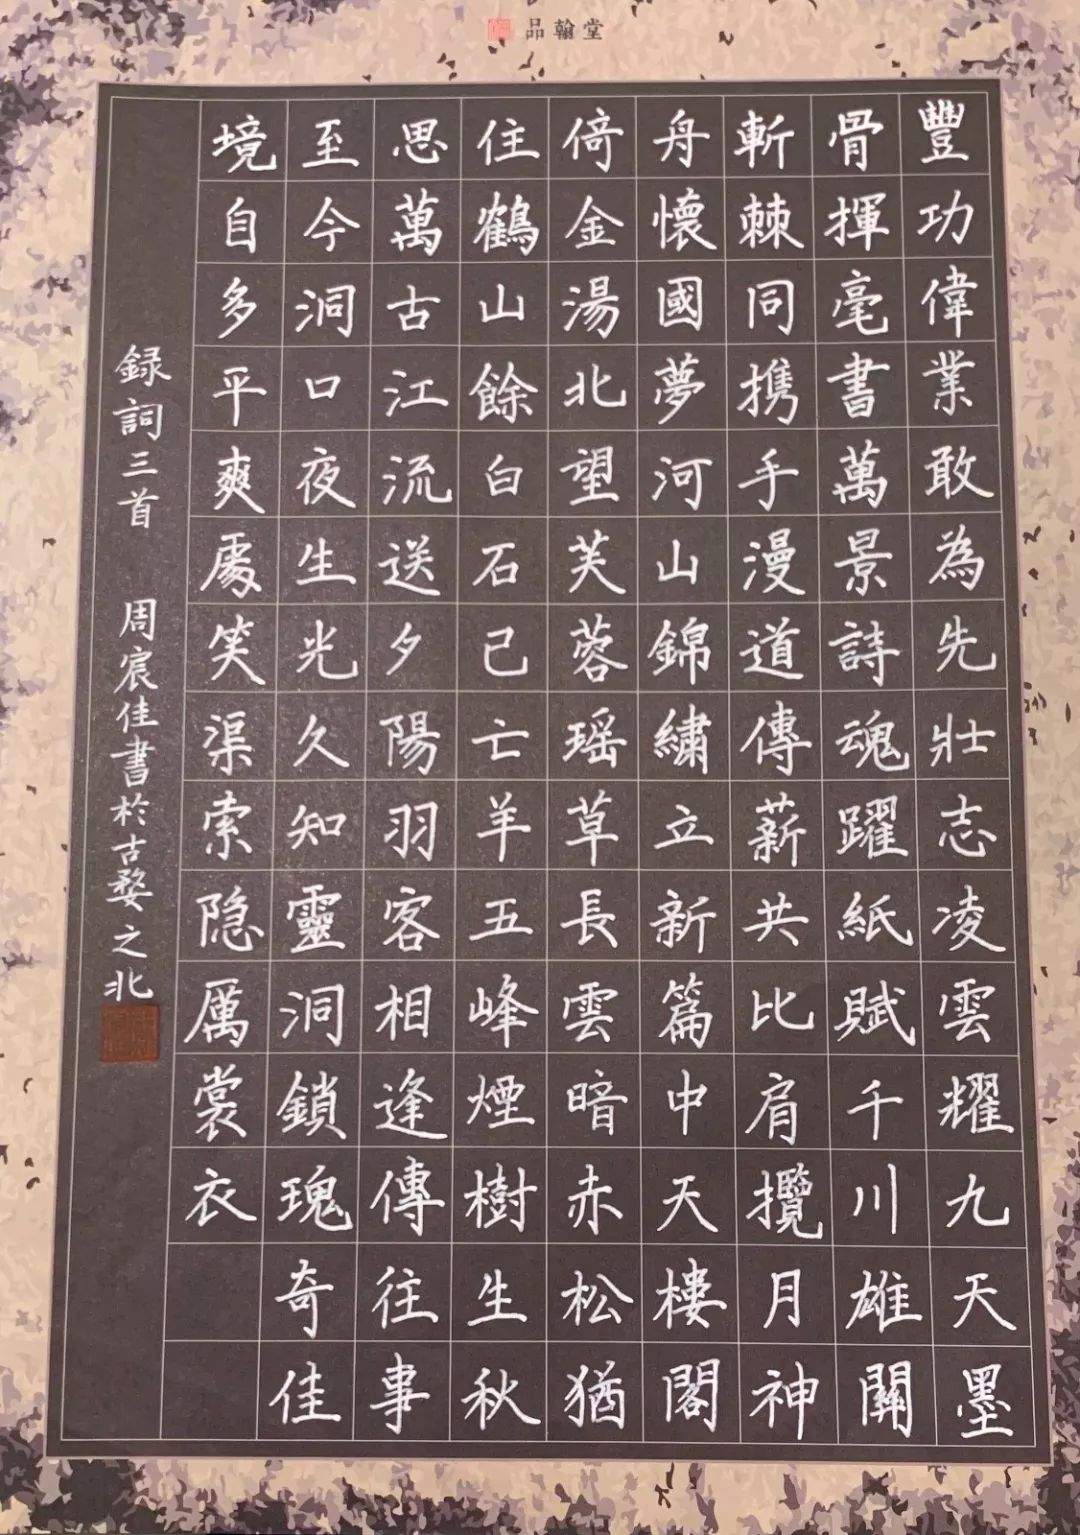 品翰堂
豐功偉業敢為先壯志凌雲耀九天墨
骨揮毫書萬景詩魂躍紙賦千川雄關
斬棘同攜手漫道傳薪共比肩攬月神
舟懷國夢河山錦繡立新篇中天樓閣
倚金湯北望芙蓉瑶草長雲暗赤松猶
住鶴山餘白石已亡羊五峰煙樹生秋
思萬古江流送夕陽羽客相逢傳往事
至今洞口夜生光久知靈洞鎖瑰奇佳
境自多平爽處笑渠索隐厲裳衣
録詞三首 周宸佳書於古婺之北